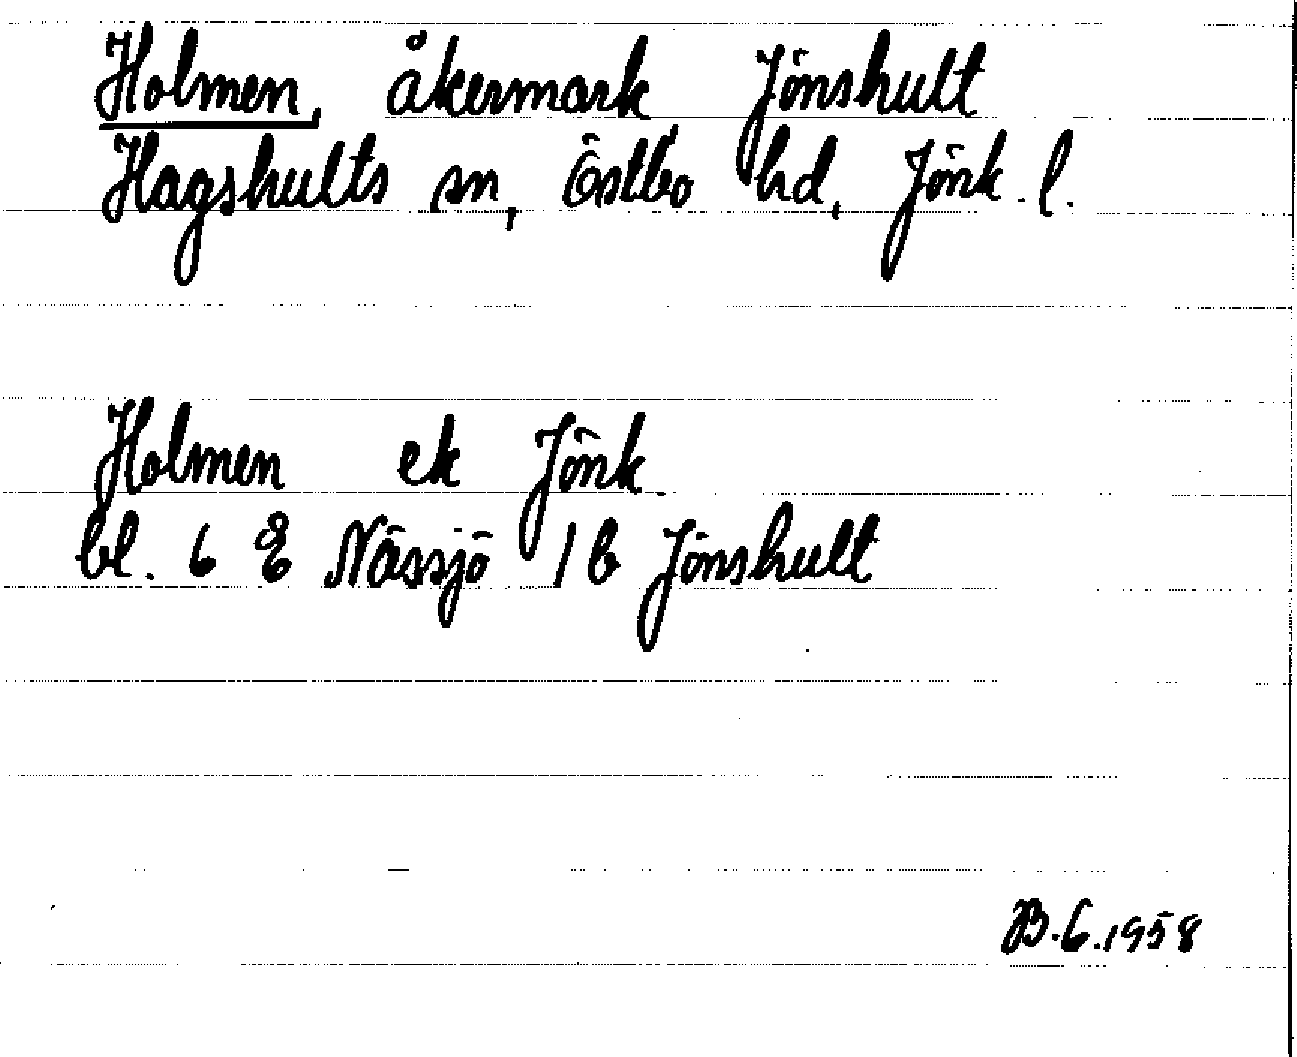 Holmen, åkermark Jönshult
Hagshults sn, Östbo hd, Jönk. l.
Holmen ek Jönk
bl. 6 E Nässjö 1 b Jönshult
B.G.1958